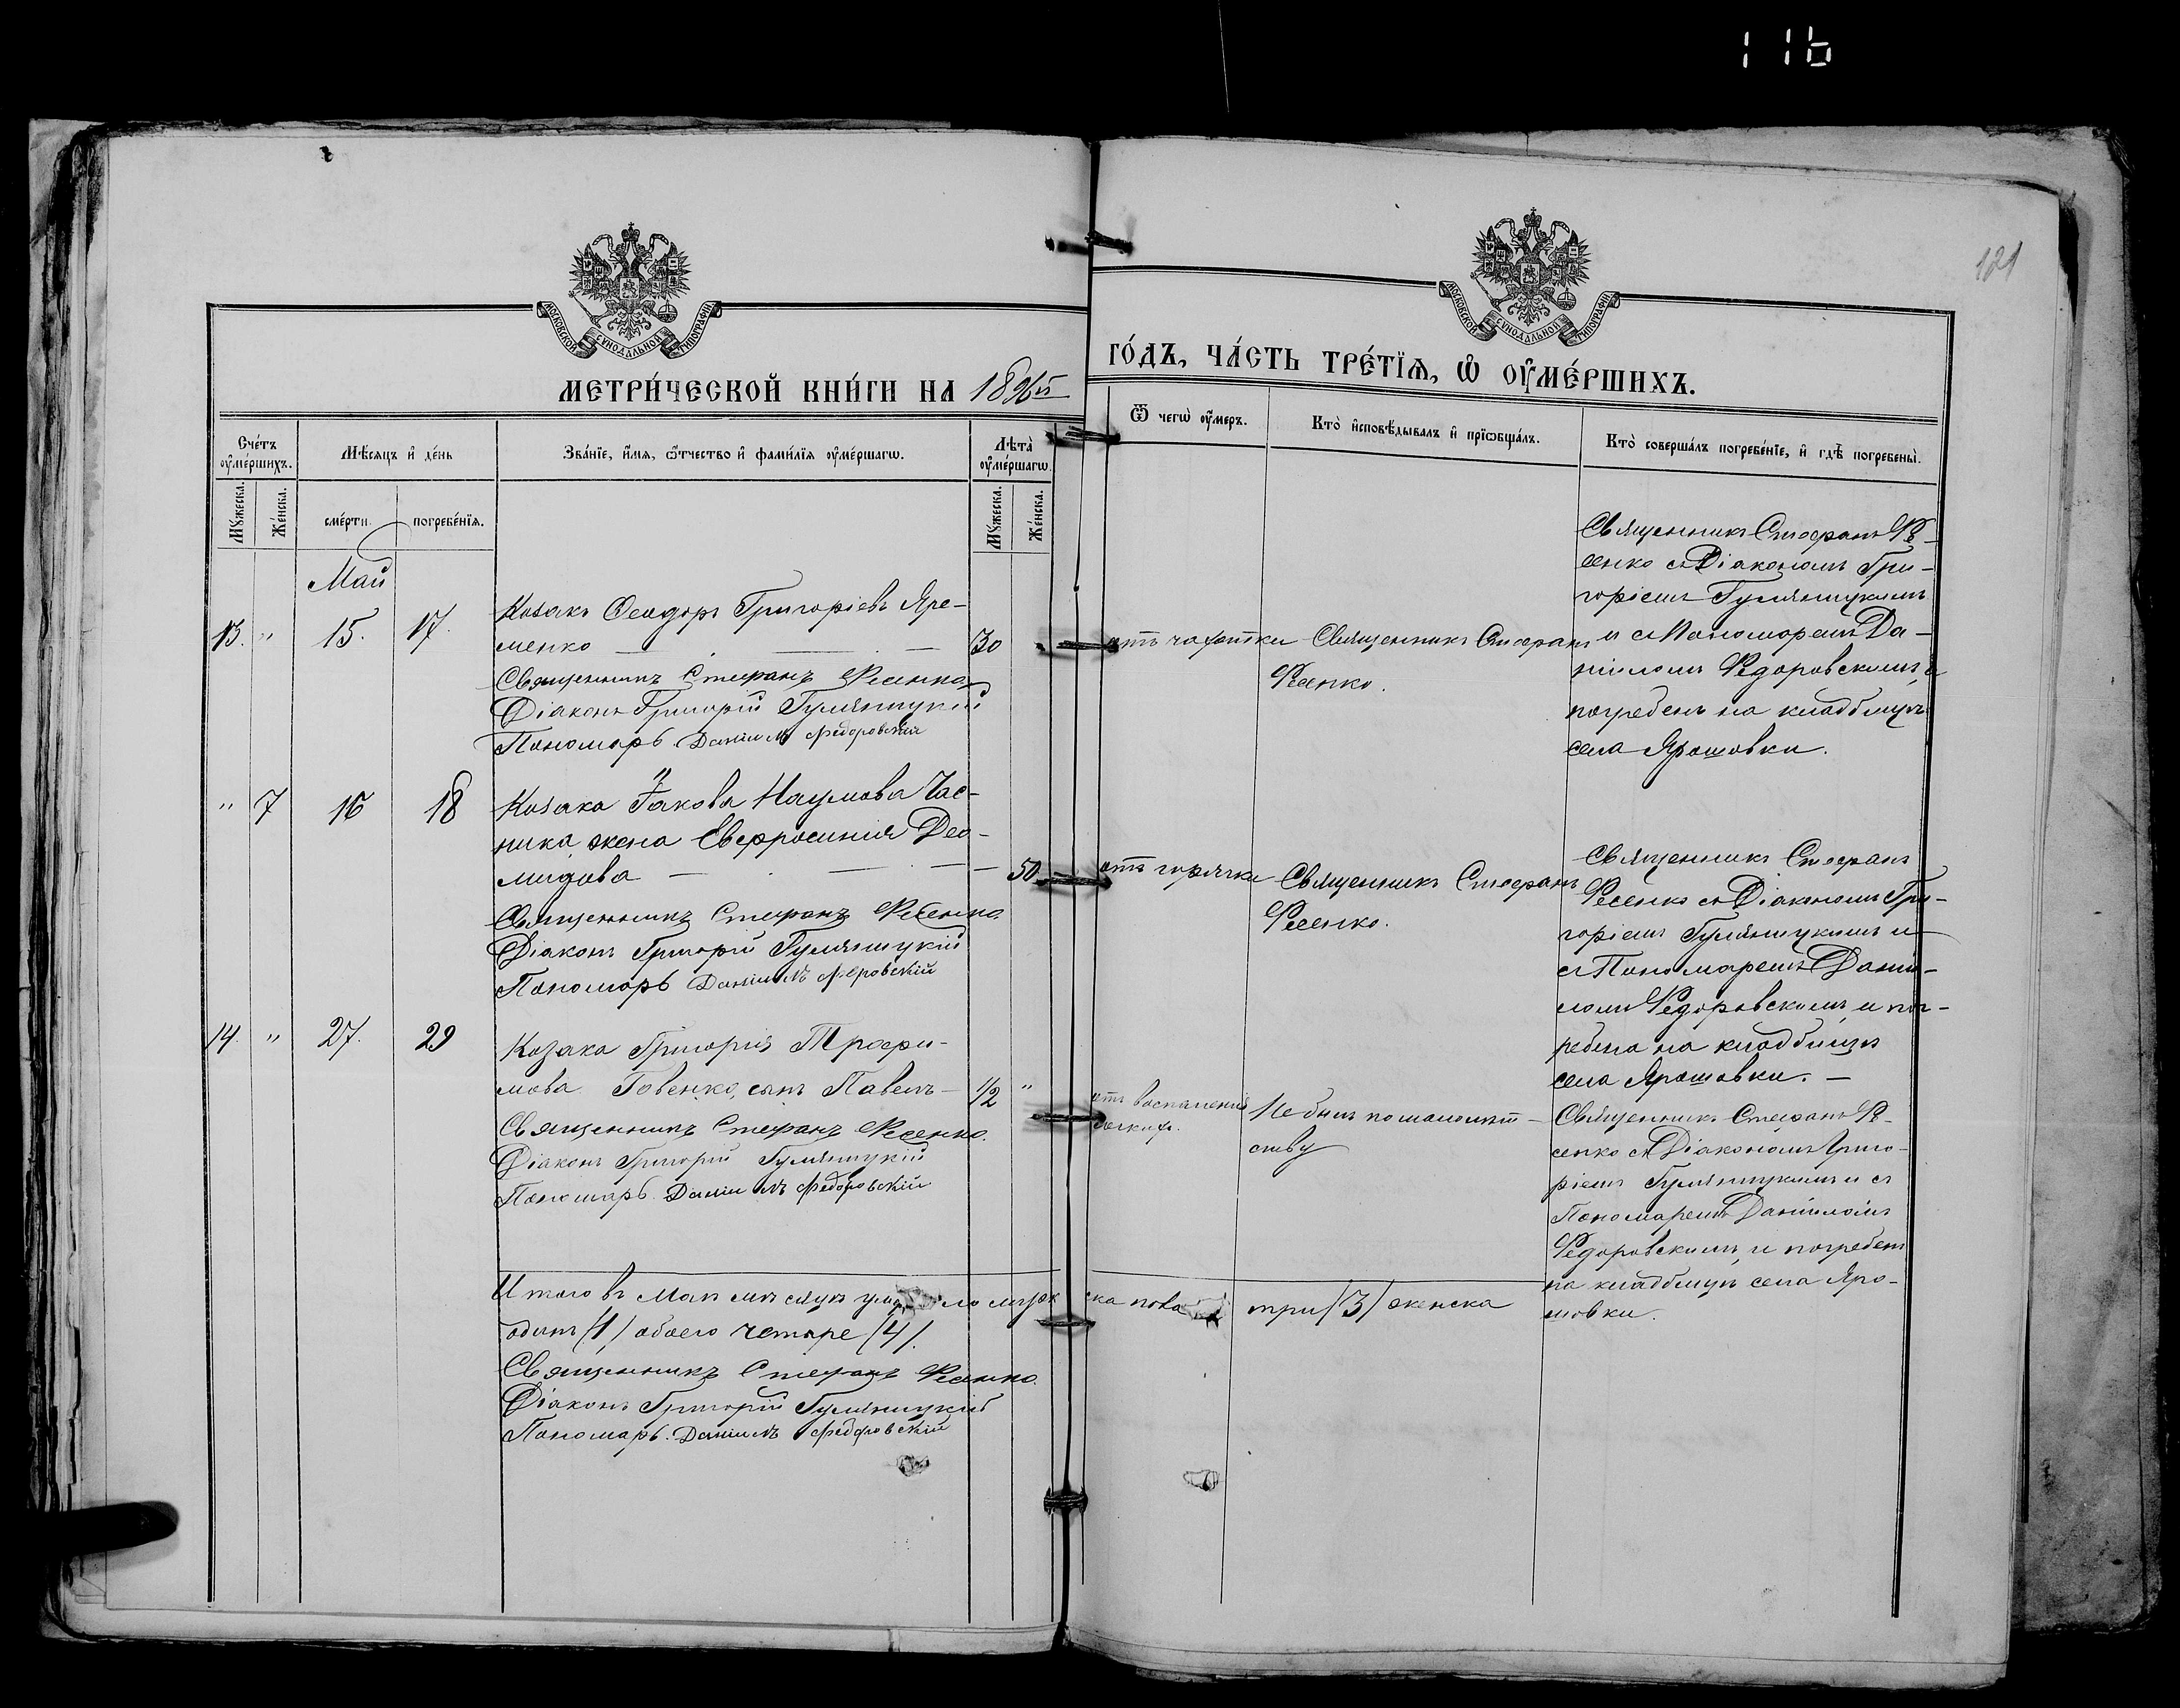 116
121
МОСКОВСКОЙ СѴНОДАЛЬНОЙ ТИПОГРАФІИ
МОСКОВСКОЙ СѴНОДАЛЬНОЙ ТИПОГРАФІИ
МЕТРИ́ЧЕСКОЙ КНИ́ГИ НА 1896й
ГО́ДЪ, ЧА́СТЬ ТРЕ́ТЇѦ, Ѡ҆ ОУ҆МЕ́РШИХЪ.
Счетъ оу҆ме́ршихъ.
Мѣ́сяцъ и҆ де́нь
Зва́нїе, и҆́мя, ѻ҆́тчество и҆ фами́лїя оу҆ме́ршагѡ.
Лѣта̀ оу҆ме́ршагѡ.
Ѿ чегѡ̀ оу҆́меръ.
Кто̀ и҆сповѣ́дывалъ и҆ прїѡбща́лъ.
Кто̀ соверша́лъ погребе́нїе, и҆ гдѣ̀ погребены̀.
Мꙋ́жеска.
Же́нска.
сме́рти.
погребе́нїя.
Мꙋ́жеска.
Же́нска.
Май
13. " 15. 17.
Козакъ Ѳеодоръ Григоріевъ Яре-
менко 30
Священникъ Стефанъ Фесенко
Діаконъ Григорій Гумяницкій
Пономарь Даніилъ Федоровскій
отъ чахотки
Священникъ Стефанъ
Фесенко.
Священникъ Стефанъ Фе-
сенко съ Діакономъ Гри-
горіемъ Гумяницкимъ
и съ Пономаремъ Да-
ніиломъ Федоровскимъ, и
погребенъ на кладбищѣ
села Ярошовки.
" 7 16 18
Козака Іакова Наумова Час-
ника жена Евфросинія Део-
мидова 50
Священникъ Стефанъ Фесенко
Діаконъ Григорій Гумяницкій
Пономарь Даніилъ
отъ горячки
Священникъ Стефанъ
Фесенко.
Священникъ Стефанъ
Фесенко съ Діакономъ Гри-
горіемъ Гумяницкимъ и
съ Пономаремъ Даніи-
ломъ Федоровскимъ, и пог-
ребена на кладбищѣ
села Ярошовки. —
14. " 27. 29
Козака Григорія Трофи-
мова Говенко, сынъ Павелъ — 1/2 "
Священникъ Стефанъ Фесенко.
Діаконъ Григорій Гумяницкій
Пономарь Даніилъ Федоровскій
отъ воспаленія
легких.
Не былъ по малолѣт-
ству
Священникъ Стефанъ Фе-
сенко съ Діакономъ Григо-
ріемъ Гумяницкимъ и съ
Пономаремъ Даніиломъ
Федоровскимъ, и погребенъ
на кладбищѣ села Яро-
шовки.
Итого въ Маѣ мѣсяцѣ муж
ска пола три /3/ женска
одинъ /1/ обоего четыре /4/.
Священникъ Стефанъ Фесенко
Діаконъ Григорій Гумяницкій
Пономарь. Даніилъ Федоровскій